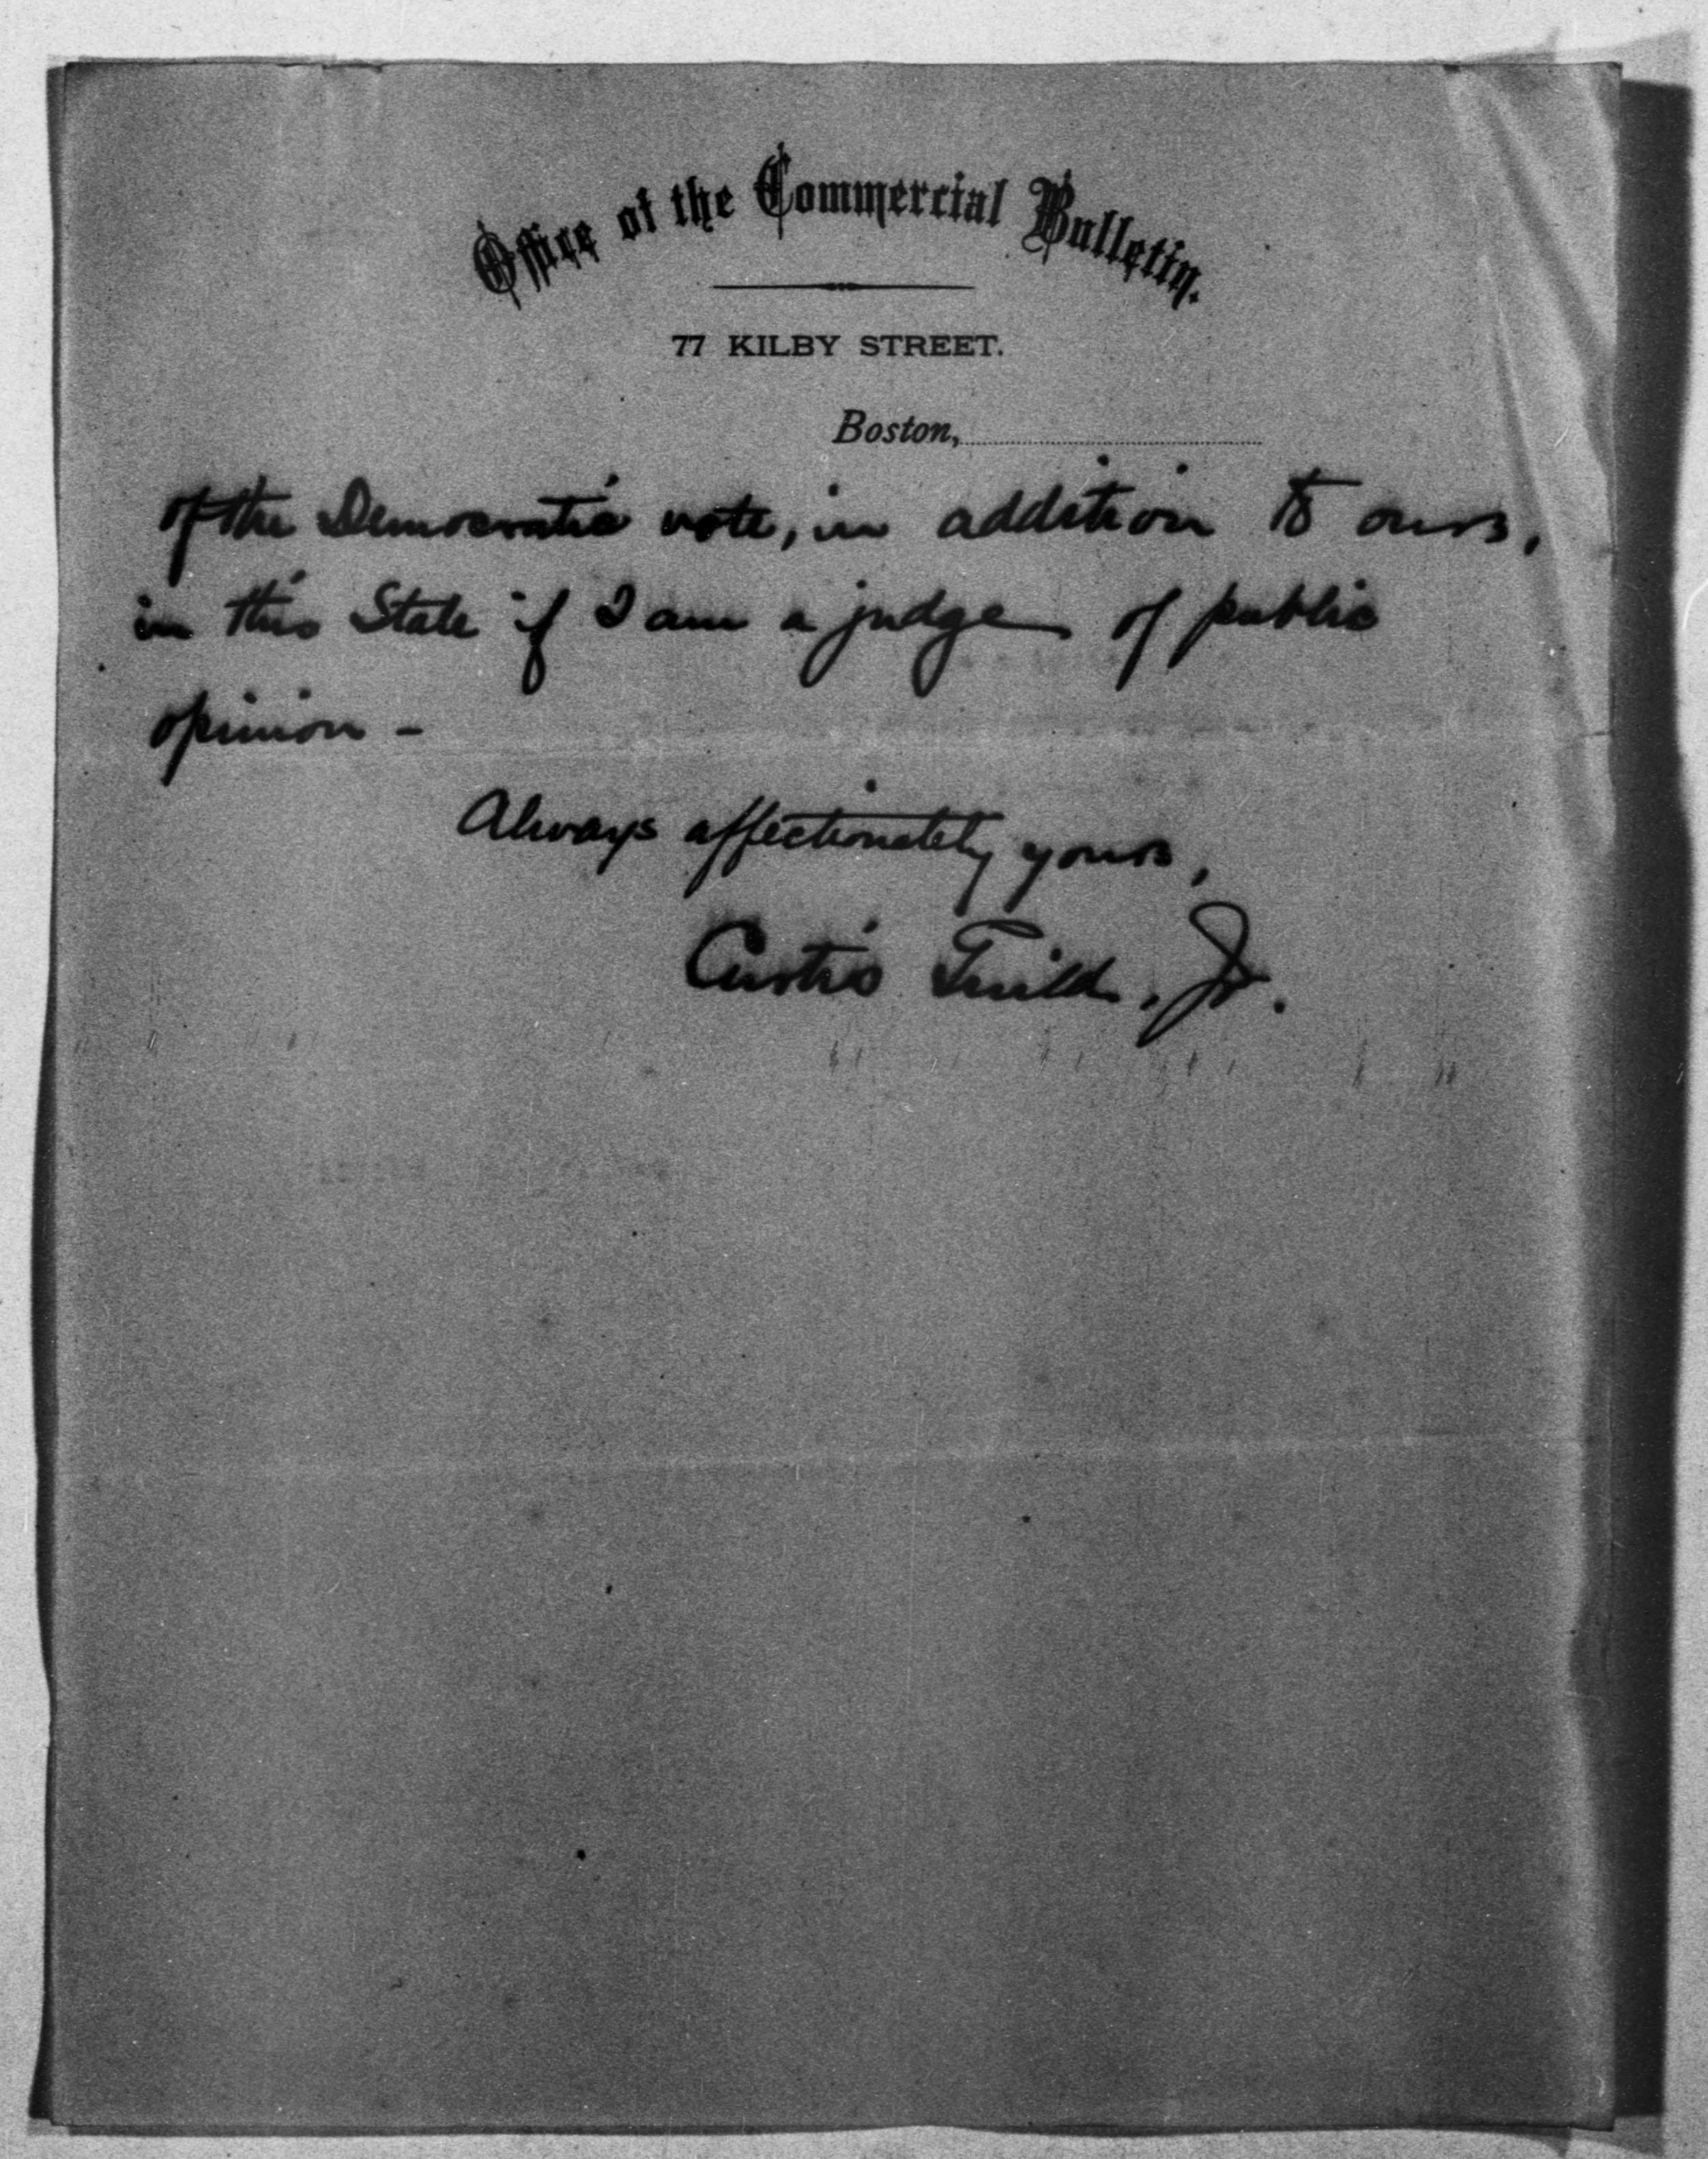 Office of the Commercial Bulletin.
77 KILBY STREET.
Boston,
of the Democratic vote, in addition to ours,
in this State if I am a judge of public
opinion -
Always affectionately yours,
Curtis Guild, Jr.